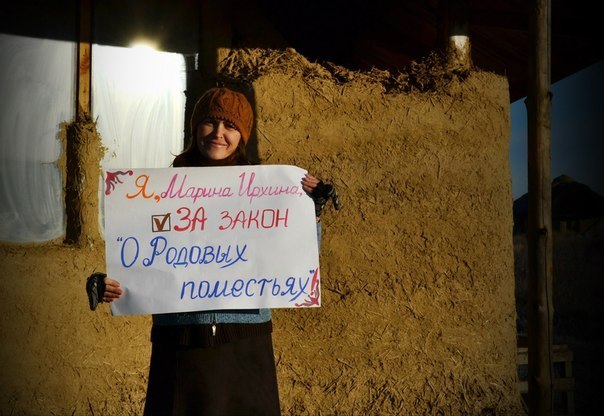 Я, Марина Ирхина,
ЗА ЗАКОН
"О Родовых
поместьях"